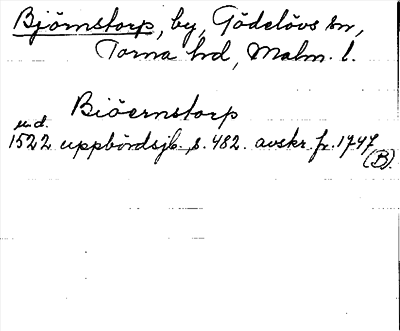 Björnstorp, by, Gödelövs sn,
Torna hd, Malm. l.
Biöernstorp
u.d.
1522 uppbördsjb., s. 482. avskr. fr. 1747
(B).